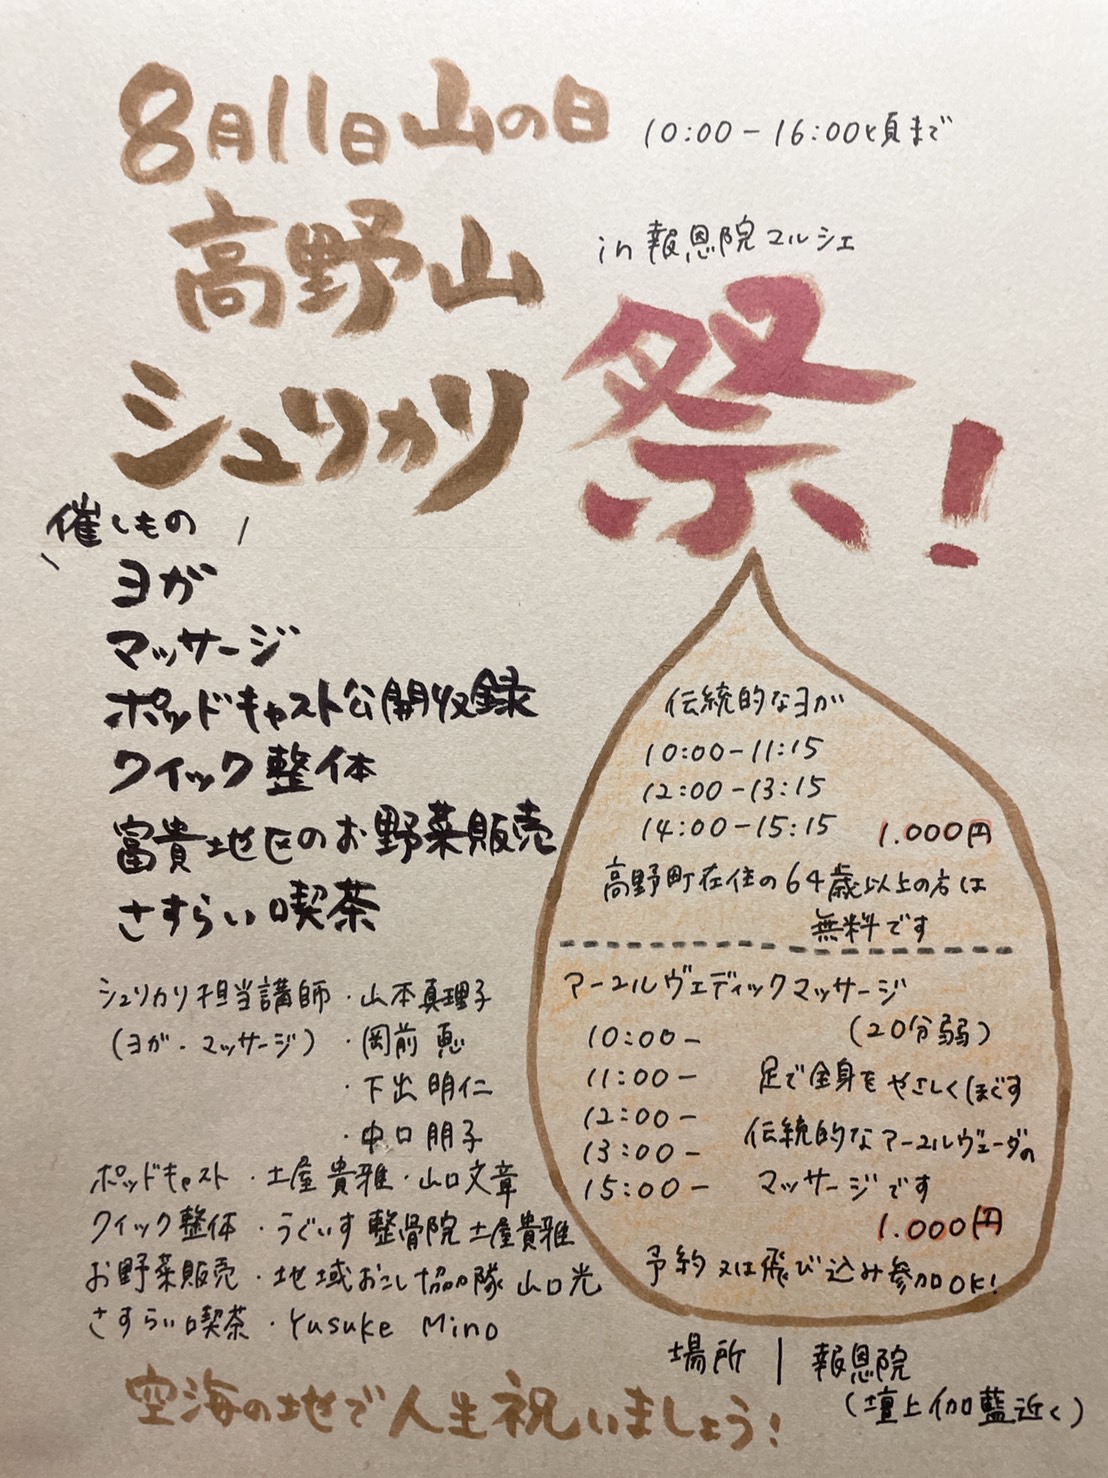 8月11日 山の日
10:00-16:00頃まで
高野山
in 報恩院マルシェ
シュリカリ祭!
催しもの
ヨガ
マッサージ
ポッドキャスト公開収録
クイック整体
富貴地区のお野菜販売
さすらい喫茶
シュリカリ担当講師・山本真理子
(ヨガ・マッサージ) ・岡前 恵
・下出明仁
・中口朋子
ポッドキャスト・土屋貴雅・山口文章
クイック整体・うぐいす整骨院 土屋貴雅
お野菜販売・地域おこし協力隊 山口光
さすらい喫茶・Yusuke Mino
伝統的なヨガ
10:00-11:15
12:00-13:15
14:00-15:15 1.000円
高野町在住の64歳以上の方は
無料です
アーユルヴェディックマッサージ
(20分弱)
10:00-
11:00-
12:00-
13:00-
15:00-
足で全身をやさしくほぐす
伝統的なアーユルヴェーダの
マッサージです
1.000円
予約又は飛び込み参加OK!
場所 | 報恩院
(壇上伽藍近く)
空海の地で人生祝いましょう!